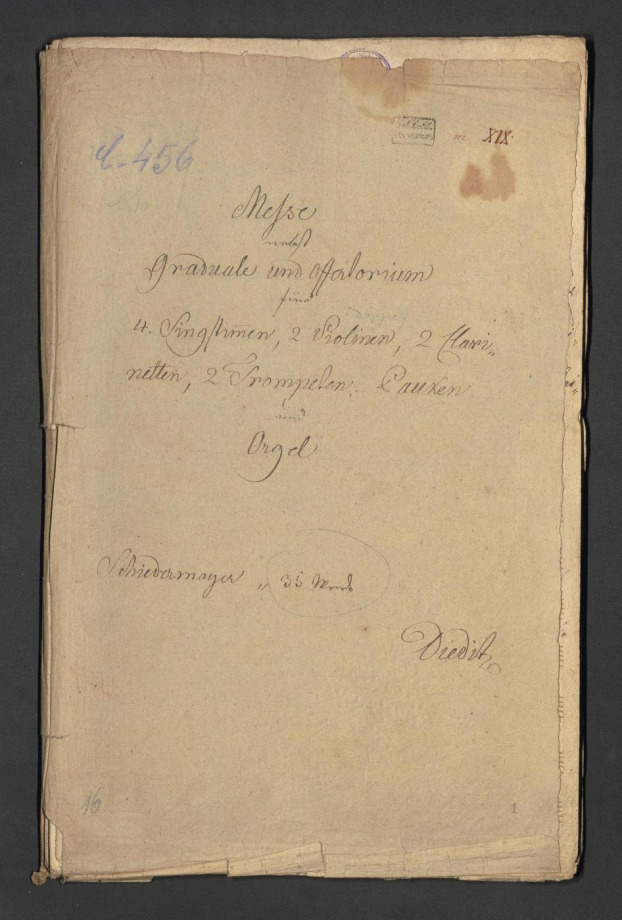 m XIX.
C-456
Messe
nebst
Graduale und Offertorium
für
doppel
4. Singstimen, 2 Violinen, 2 Clari-
netten, 2 Trompeten. Pauken
und
Orgel
Schiedermayer „ 35 Werk
Diedik
16
1